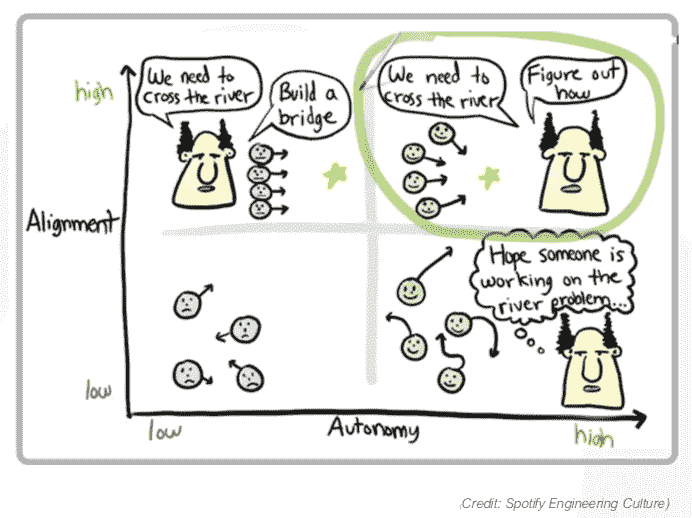 We need to
cross the river
Build a
bridge
We need to
cross the river
Figure out
how
high
Alignment
Hope someone is
working on the
river problem...
low
low
Autonomy
high
(Credit: Spotify Engineering Culture)